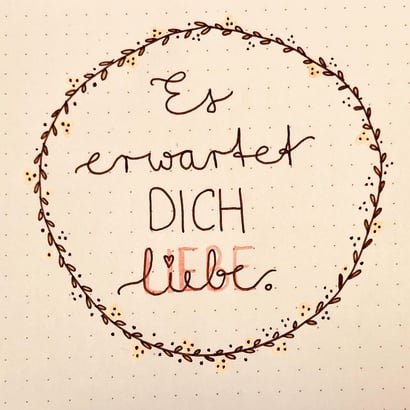 Es
erwartet
DICH
liebe.
LIEBE